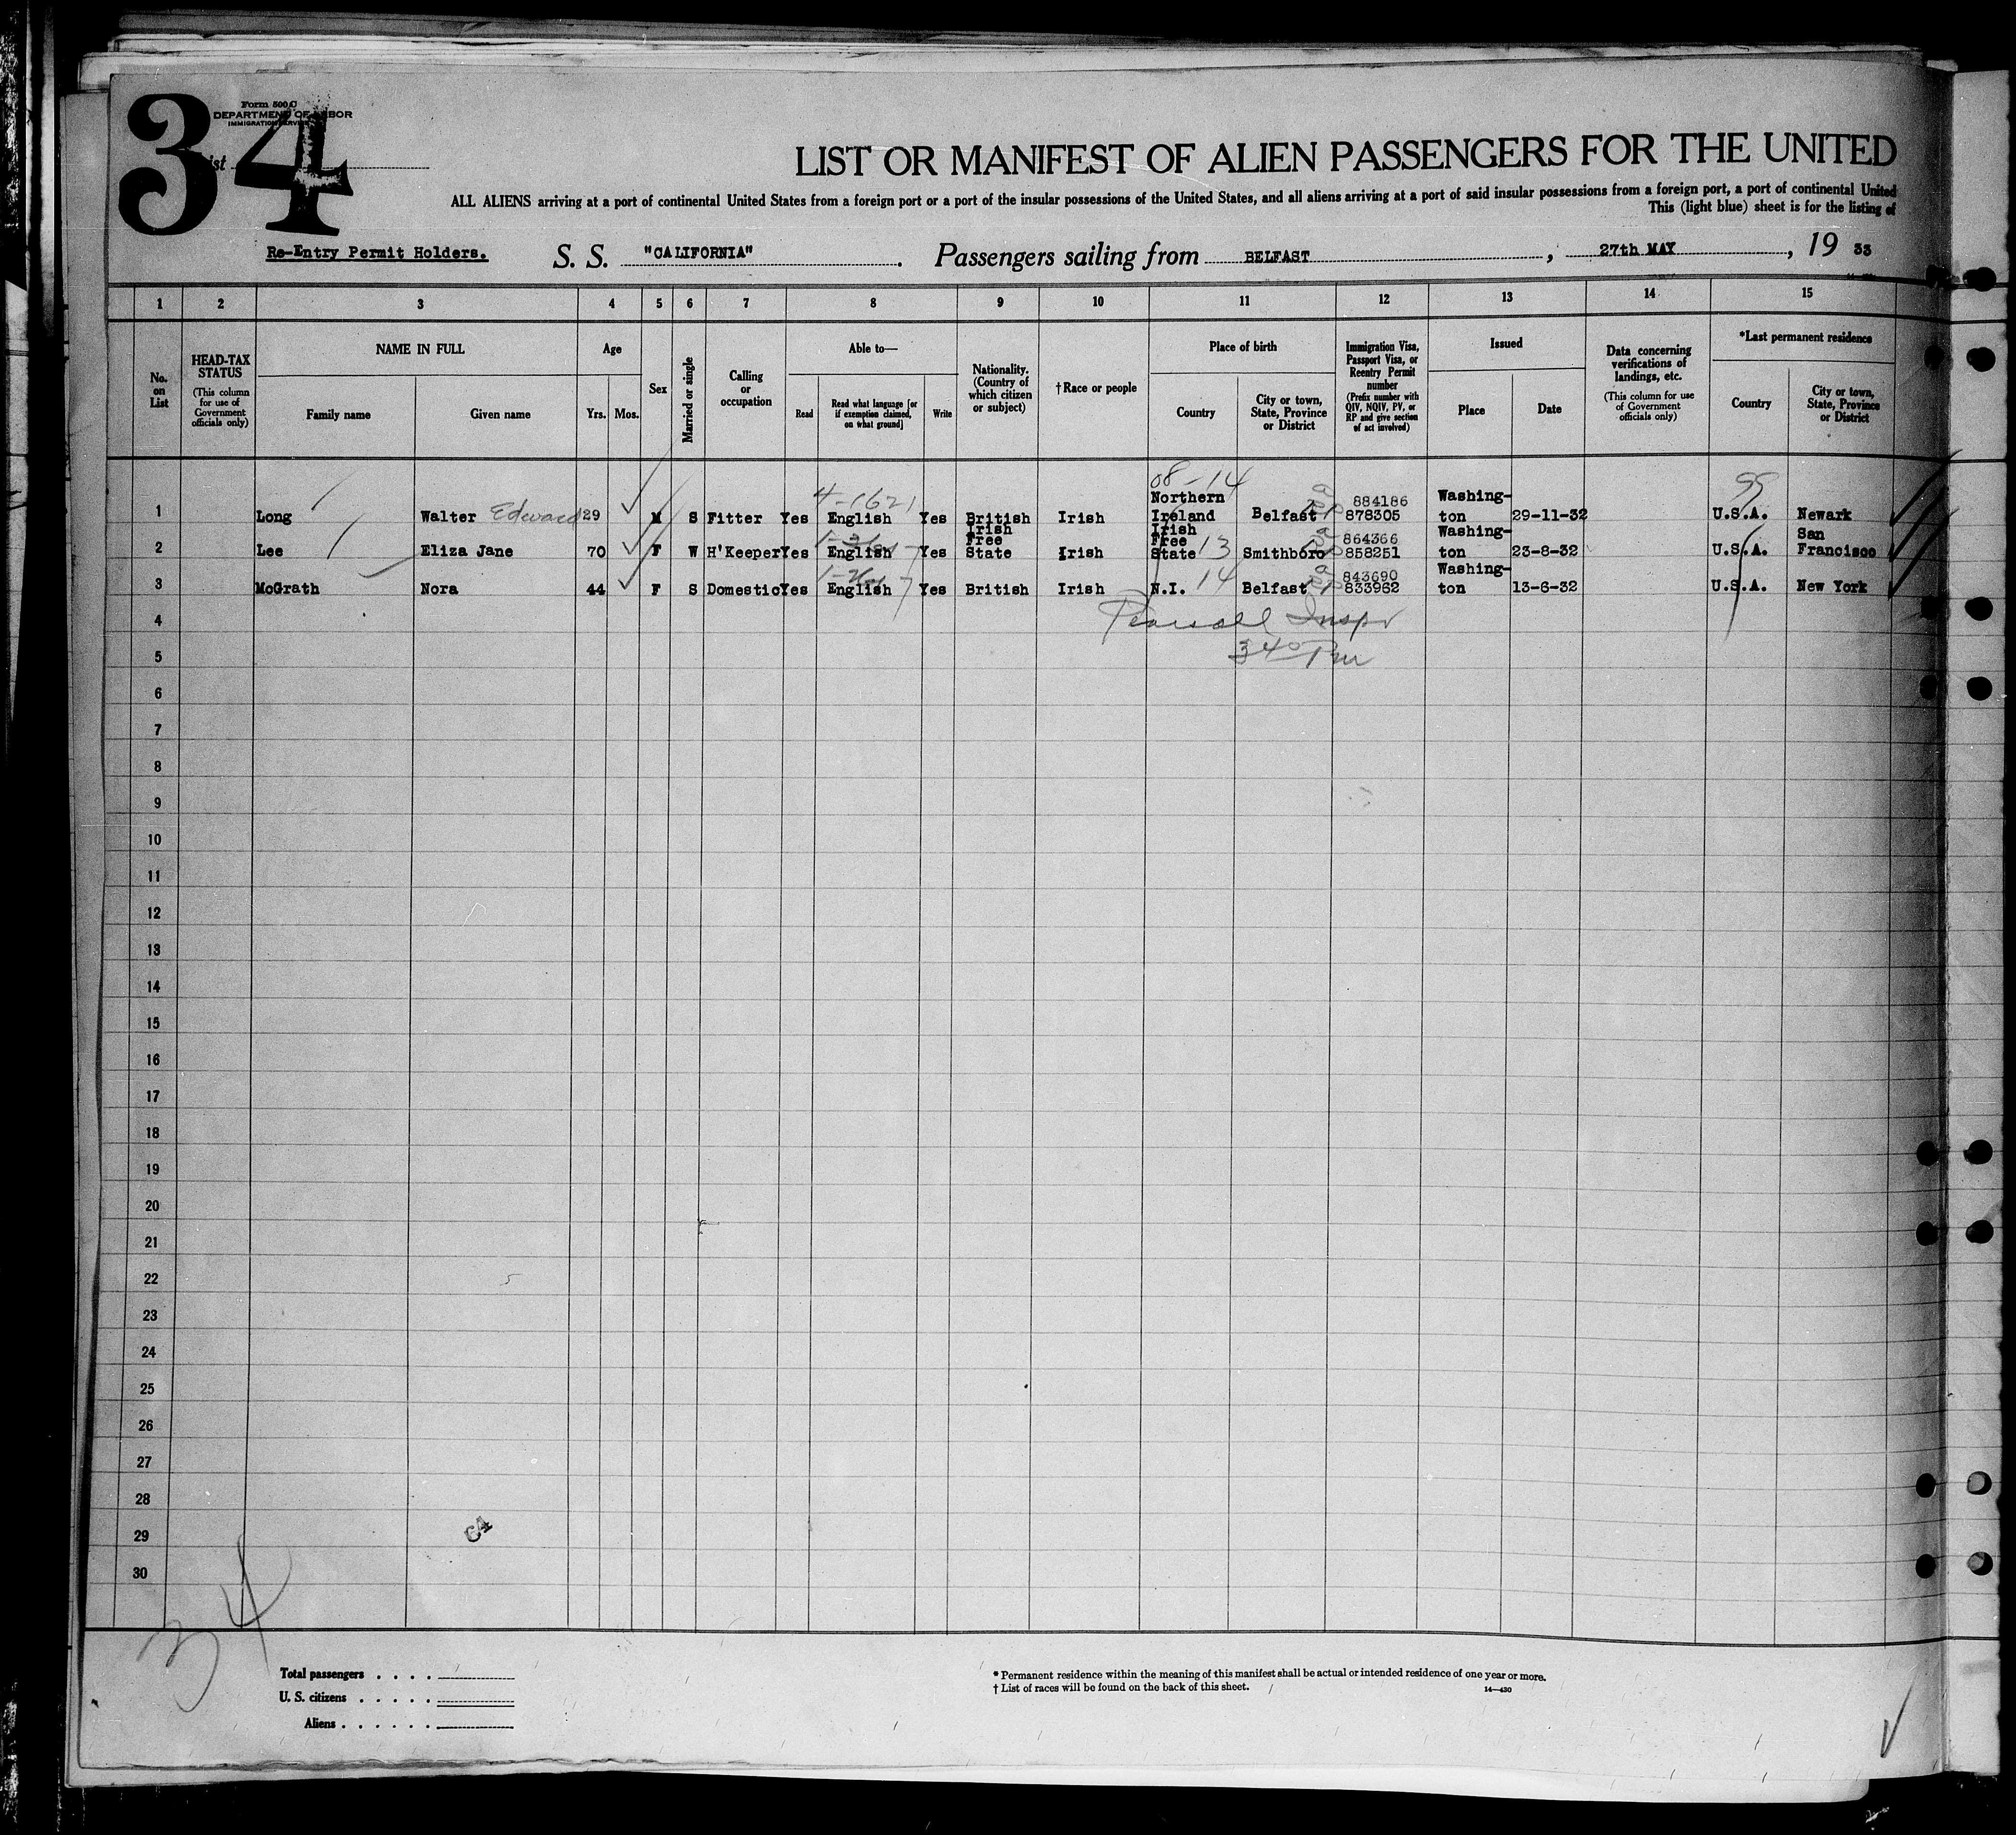 34
Form 500 C
DEPARTMENT OF LABOR
IMMIGRATION SERVICE
List
LIST OR MANIFEST OF ALIEN PASSENGERS FOR THE UNITED
ALL ALIENS arriving at a port of continental United States from a foreign port or a port of the insular possessions of the United States, and all aliens arriving at a port of said insular possessions from a foreign port, a port of continental United
This (light blue) sheet is for the listing of
Re-Entry Permit Holders. S. S. "CALIFORNIA". Passengers sailing from BELFAST, 27th MAY, 19 33
1 2 3 4 5 6 7 8 9 10 11 12 13 14 15
No. on List
HEAD-TAX STATUS
(This column for use of Government officials only)
NAME IN FULL
Family name Given name
Age
Yrs. Mos.
Sex
Married or single
Calling or occupation
Able to—
Read
Read what language [or if exemption claimed, on what ground]
Write
Nationality. (Country of which citizen or subject)
†Race or people
Place of birth
Country
City or town, State, Province or District
Immigration Visa, Passport Visa, or Reentry Permit number
(Prefix number with QIV, NQIV, PV, or RP and give section of act involved)
Issued
Place Date
Data concerning verifications of landings, etc.
(This column for use of Government officials only)
*Last permanent residence
Country
City or town, State, Province or District
08-14
1 Long Walter Edward 29 M S Fitter Yes English Yes British Irish Northern Ireland Belfast 884186 878305 Washing-ton 29-11-32 U.S.A. Newark
2 Lee Eliza Jane 70 F W H'Keeper Yes English Yes Irish Free State Irish Irish Free State 13 Smithboro 864366 858251 Washing-ton 23-8-32 U.S.A. San Francisco
3 McGrath Nora 44 F S Domestic Yes English Yes British Irish N.I. 14 Belfast 843690 833962 Washing-ton 13-6-32 U.S.A. New York
4 Inspr
5 340 Pm
6
7
8
9
10
11
12
13
14
15
16
17
18
19
20
21
22
23
24
25
26
27
28
29 C4
30
34
Total passengers . . . .
U. S. citizens . . . . .
Aliens . . . . . .
* Permanent residence within the meaning of this manifest shall be actual or intended residence of one year or more.
† List of races will be found on the back of this sheet.
14—430